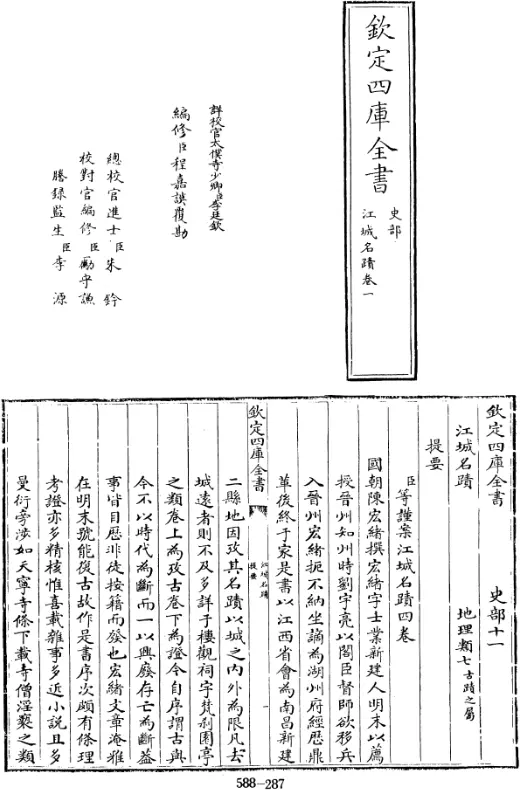 欽定四庫全書
史部
江城名蹟卷一
詳校官太僕寺少卿臣李廷欽
編修臣程嘉謨覆勘
總校官進士臣朱鈐
校對官編修臣勵守謙
謄錄監生臣李源
欽定四庫全書　史部十一
江城名蹟　地理類七古蹟之屬
提要
臣等謹案江城名蹟四卷
國朝陳宏緒撰宏緒字士業新建人明末以薦
授晉州知州時劉宇亮以閣臣督師欲移兵
入晉州宏緒拒不納坐謫為湖州府經歷鼎
革後終于家是書以江西省會為南昌新建
欽定四庫全書
江城名蹟
提要
二縣地因攷其名蹟以城之內外為限凡去
城遠者則不及多詳于樓觀祠宇梵刹園亭
之類卷上為攷古卷下為證今自序謂古與
今不以時代為斷而一以興廢存亡為斷葢
事皆目歷非徒按籍而發也宏緒文章淹雅
在明末號能復古故作是書序次頗有條理
考證亦多精核惟喜載雜事多近小說且多
曼衍旁涉如天寧寺條下載寺僧淫褻之類
588-287